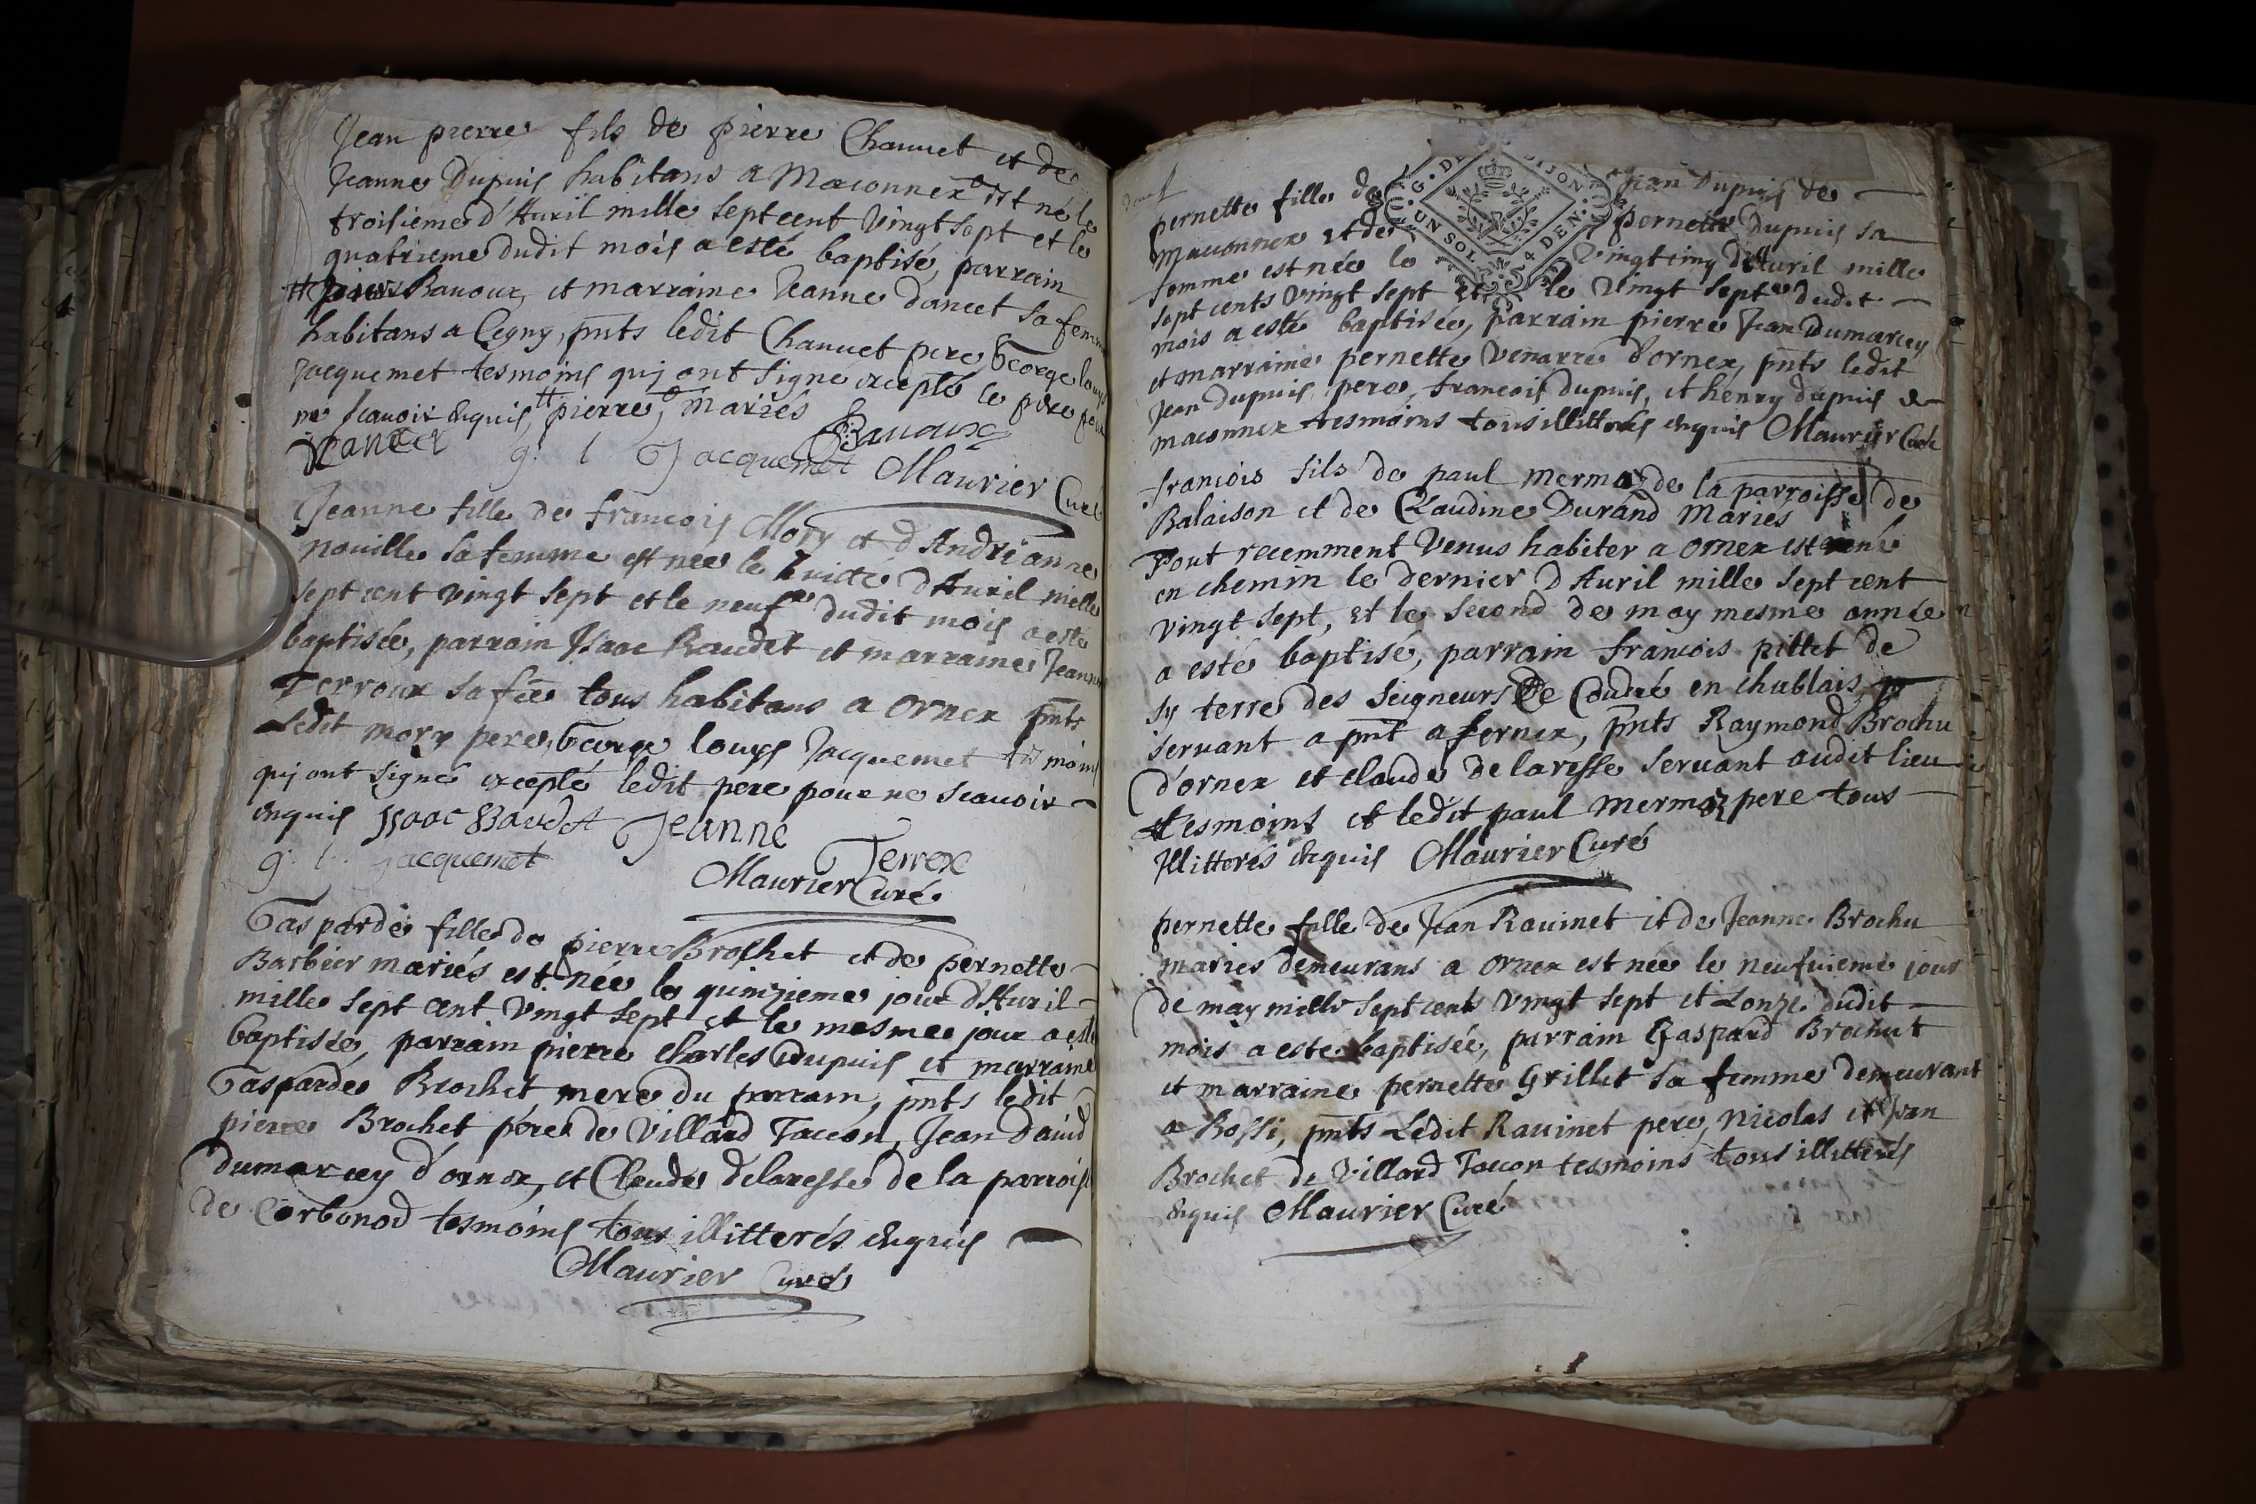 Jean pierre fils de pierre Chauuet et de
Jeanne Dupuis habitans a Maconnex est né le
troisieme d'Auril mille sept cent vingt sept et le
quatrieme dudit mois a esté baptisé, parrain
Bauoux, et marraine Jeanne dancet sa femme
habitans a Cegny, pnts ledit Chauuet pere George louys
Jacquemet tesmoins quj ont signé excepté le pere pour
ne scauoir enquis, # pierre, mariés
Bauoux
g. l Jacquemet Maurier Curé
Jeanne fille de francois Mory et d'Andrianne
nouille sa femme est née le huitte d'Auril mille
sept cent vingt sept et le neuf dudit mois a esté
baptisée, parrain Isaac Baudet et marraine Jeanne
Terroux sa fẽe tous habitans a Ornex pnts
Ledit mory pere, George louys Jacquemet tesmoins
quj ont signé excepté ledit pere pour ne scauoir
enquis Isaac Baudet Jeanne
g. l. Jacquemet Terrox
Maurier Curé
Gasparde fille de pierre Brochet et de pernette
Barbier mariés est née le quinzieme jour d'Auril
mille sept cent vingt sept et le mesme jour a esté
baptisée, parrain pierre charles Dupuis et marraine
Gasparde Brochet mere du parrain, pnts ledit
pierre Brochet pére de Villard Tacon, Jean Dauid
dumarcey d'ornex, et Claude delaresse de la parroisse
de Corbonod tesmoins tous illitterés enquis
Maurier Curé
G. DE DIJON
UN SOL 4 DEN.
pernette fille de Jean Dupuis de
Maconnex et de pernette Dupuis sa
femme est née le vingt cinq d'Auril mille
sept cents vingt sept et le vingt sept dudit
mois a esté baptisée, parrain pierre Jean Dumarcey
et marraine pernette Venarre d'ornex, pnts ledit
Jean dupuis pere, francois dupuis, et henry dupuis de
maconnex tesmoins tous illitterés enquis Maurier Curé
francois fils de paul mermoz de la parroisse de
Balaison et de Claudine Durand Mariés
Tout recemment Venus habiter a ornex est né
en chemin le dernier d'Auril mille sept cent
vingt sept, et le second de may mesme année
a esté baptisé, parrain francois pittet de
sy terre des seigneurs De Coudré en chablais
seruant a pnt a fernex, pnts Raymond Brochu
d'ornex et claude delaresse seruant audit lieu
tesmoins et ledit paul mermoz pere tous
Illitterés enquis Maurier Curé
pernette fille de Jean Rauinet et de Jeanne Brochu
mariés demeurans a ornex est née le neufuieme jour
de may mille sept cents vingt sept et Lonze dudit
mois a esté baptisée, parrain Gaspard Brochut
et marraine pernette Grillet sa femme demeurant
a Bossi, pnts Ledit Rauinet pere, Nicolas et Jean
Brochet de Villard Taccon tesmoins tous illitterés
enquis Maurier Curé